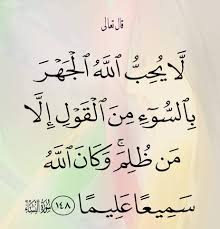 قال تعالى
لَّا يُحِبُّ ٱللَّهُ ٱلْجَهْرَ
بِٱلسُّوٓءِ مِنَ ٱلْقَوْلِ إِلَّا
مَن ظُلِمَ ۚ وَكَانَ ٱللَّهُ
سَمِيعًا عَلِيمًا ١٤٨ سُورَةُ النِّسَاء